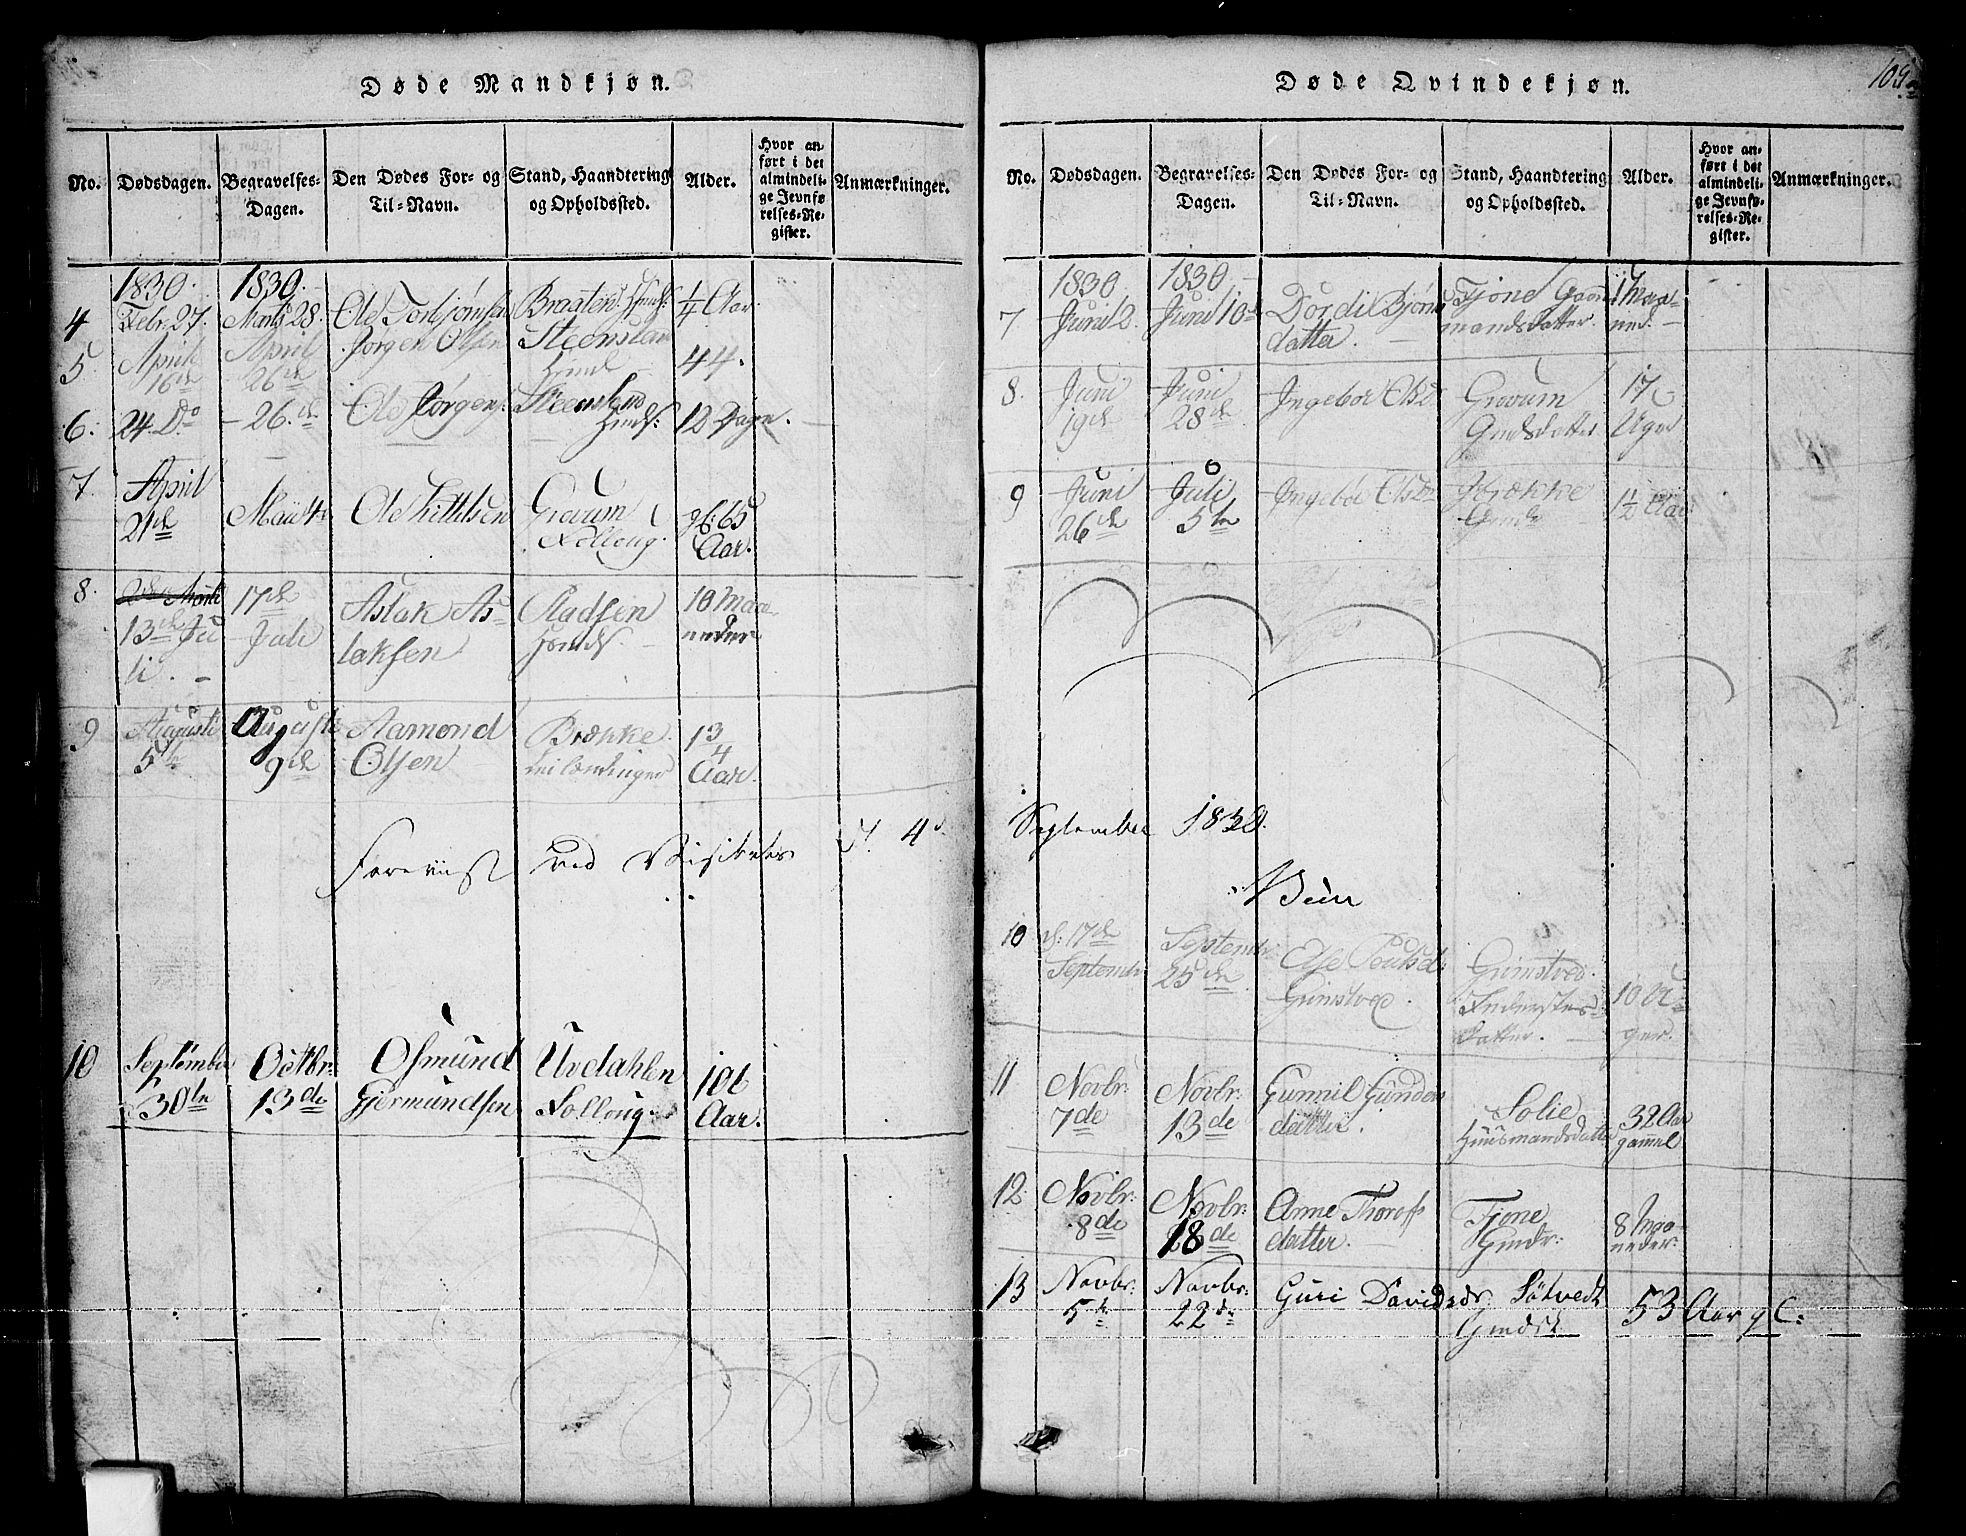 Døde Mandkjøn.
No. Dødsdagen. Begravelses-Dagen. Den Dødes For- og Til-Navn. Stand, Haandtering og Opholdssted. Alder. Hvor anført i det almindelige Jevnførelses-Register. Anmærkninger.
1830. 1830.
4 Febr. 27. Marts 28.
¼ Aar.
5 April 16de April 26de Jørgen Olsen 44.
6. 24. Do. – 26.de Ole Jørgens. Steensland 12 Dage.
7. April 21de Maii 4 Ole Kittilsen Gravum Folloug. gl. 65 Aar.
8. 13de Juli. – 17de Juli Aslak Aslaksen 10 Maaneder
9 Augusti 5te Auguste 9de Aamond Olsen Brække 13/4 Aar.
Foreviist ved Visitats
10 September 30te Octbr: 13de Osmund Gjermundsen Uvdahlen Folloug. 106 Aar.
Døde Qvindekjøn.
109
No. Dødsdagen. Begravelses-Dagen. Den Dødes For- og Til-Navn. Stand, Haandtering og Opholdssted. Alder. Hvor anført i det almindelige Jevnførelses-Register. Anmærkninger.
1830. 1830
7. Juni 2. Juni 10de Dordi Bjørnsdatter. Fjone
8. Juni 19de Juni 28de Ingebor Olsd. Gravum 17 Uger
9 Juni 26de Juli 5te Ingebor Olsd. Brække 1½ Aar
September 1830.
10 d: 17de Septembr Septembr 25de Grimstved. Grimstved. 10 Uger.
11 Novbr: 7de Novbr: 13de Gunnil Gundersdatter. Solie Huusmandsdatter 32 Aar gammel
12. Novbr: 8de Novbr: 18de Anne Thorofsdatter. Fjone Gmdr: 8 Maaneder.
13 Novbr: 5te Novbr: 22de Guri Davidsdr. Søtvedt 53 Aar gl: